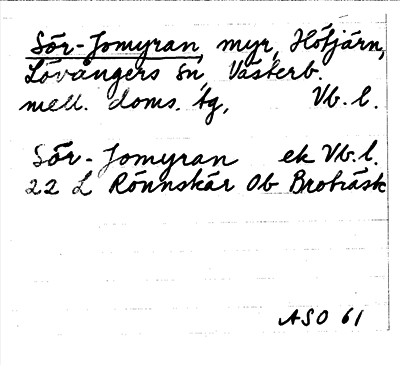 Sör-Jomyran, myr, Hötjärn,
Lövångers sn, Västerb.
mell. doms. tg, Vb. l.
Sör-Jomyran ek Vb. l.
22 L Rönnskär Ob Broträsk
ASO 61